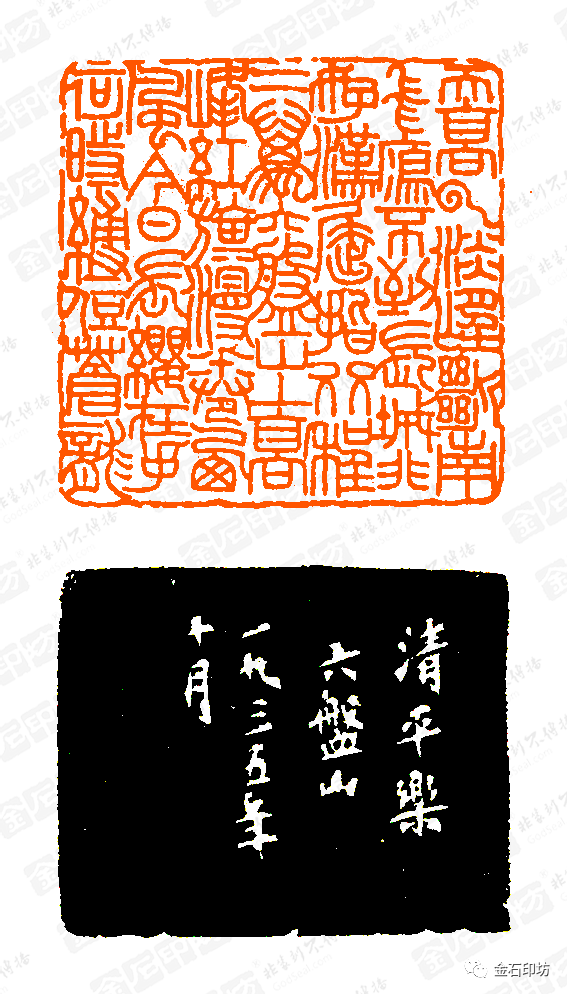 天高云淡望斷南
飛雁不到長城非
好漢屈指行程
二萬六盤山上高
峰紅旗漫卷西
風今日長纓在手
何時縛住蒼龍
清平樂
六盤山
一九三五年
十月
金石印坊